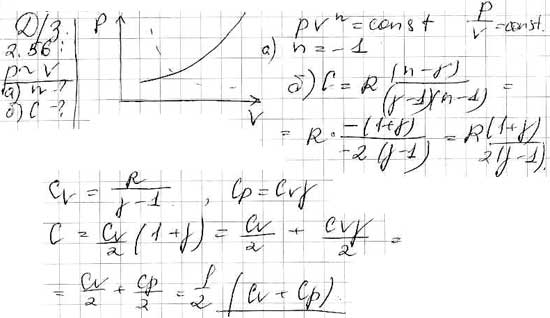 Д/З.
2.56:
p ~ V
а) n - ?
б) C - ?
P
V
pV^n = const
P/V = const.
а) n = -1
б) C = R (n-γ)/((γ-1)(n-1)) =
= R · -(1+γ)/(-2(γ-1)) = R(1+γ)/(2(γ-1)).
Cv = R/(γ-1), Cp = Cvγ
C = Cv/2 (1+γ) = Cv/2 + Cvγ/2 =
= Cv/2 + Cp/2 = 1/2 (Cv + Cp).